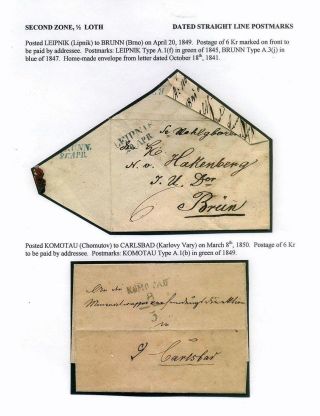 SECOND ZONE, ½ LOTH DATED STRAIGHT LINE POSTMARKS
Posted LEIPNIK (Lipnik) to BRUNN (Brno) on April 20, 1849. Postage of 6 Kr marked on front to
be paid by addressee. Postmarks: LEIPNIK Type A.1(f) in green of 1845, BRUNN Type A.3(j) in
blue of 1847. Home-made envelope from letter dated October 18th, 1841.
BRUNN.
21. APR.
LEIPNIK
Hakenberg
J. U. Dor
Brün
Posted KOMOTAU (Chomutov) to CARLSBAD (Karlovy Vary) on March 8th, 1850. Postage of 6 Kr
to be paid by addressee. Postmarks: KOMOTAU Type A.1(b) in green of 1849.
An die
KOMOTAU
8
3
in
Carlsbad